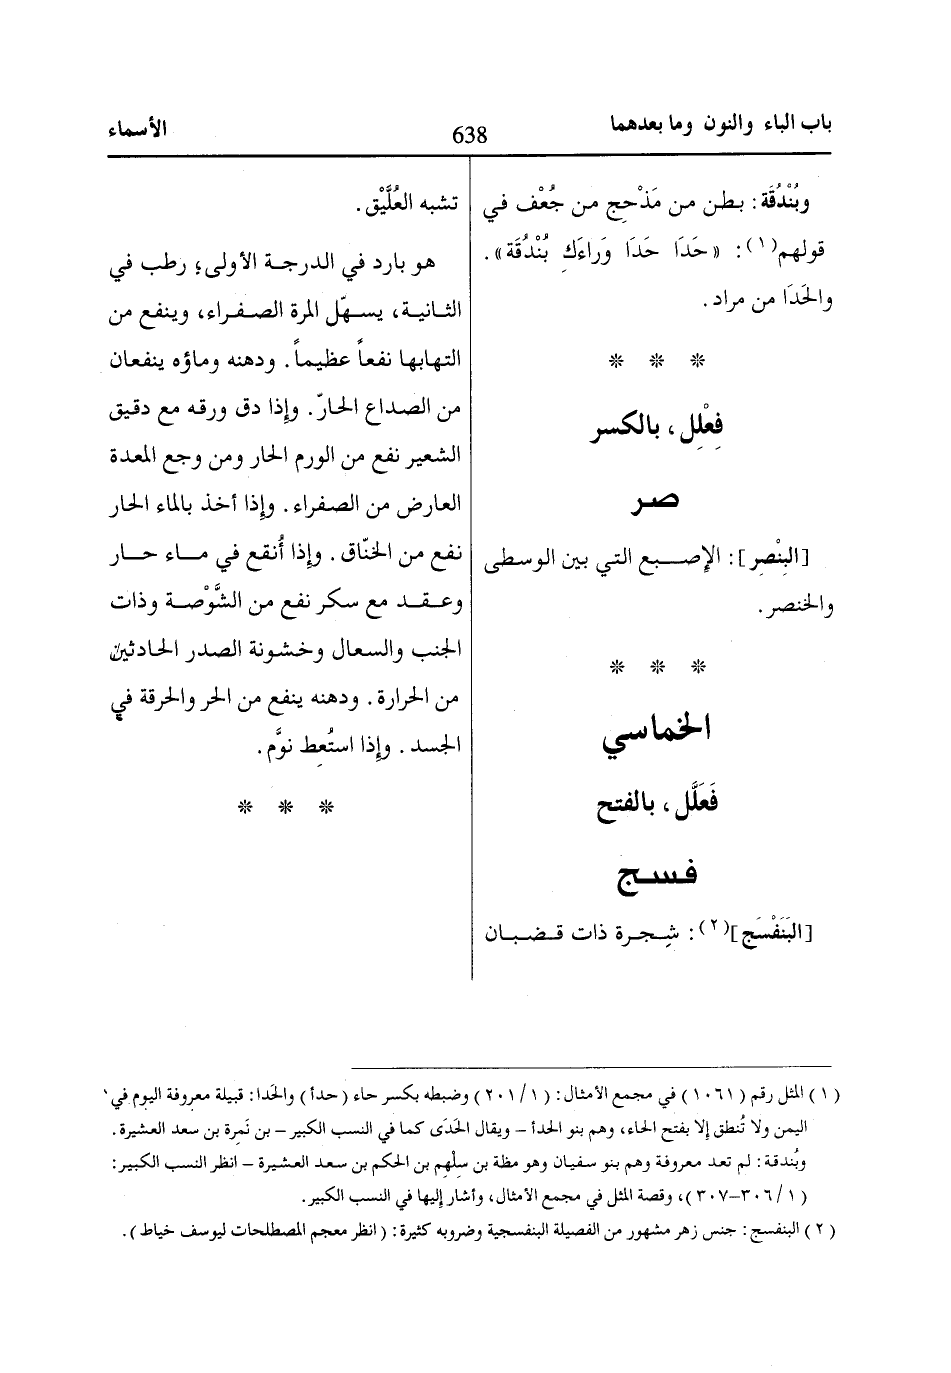 باب الباء والنون وما بعدهما
638
الأسماء
وبُنْدُقَة: بطن من مَذْحِج من جُعْف في
قولهم(١): «حَدَا حَدَا وَراءَكِ بُنْدُقَة».
والحَدَا من مراد.
* * *
فِعْلِل، بالكسر
صر
[البِنْصِر]: الإصبع التي بين الوسطى
والخنصر.
* * *
الخماسي
فَعَلَّل، بالفتح
فسج
[البَنَفْسَج](٢): شجرة ذات قضبان
تشبه العُلَّيْق.
هو بارد في الدرجة الأولى؛ رطب في
الثانية، يسهّل المرة الصفراء، وينفع من
التهابها نفعاً عظيماً. ودهنه وماؤه ينفعان
من الصداع الحارّ. وإذا دق ورقه مع دقيق
الشعير نفع من الورم الحار ومن وجع المعدة
العارض من الصفراء. وإذا أخذ بالماء الحار
نفع من الخنّاق. وإذا أُنقع في ماء حار
وعقد مع سكر نفع من الشَّوْصة وذات
الجنب والسعال وخشونة الصدر الحادثين
من الحرارة. ودهنه ينفع من الحر والحرقة في
الجسد. وإذا استُعِط نوَّم.
* * *
(١) المثل رقم (١٠٦١) في مجمع الأمثال: (١/ ٢٠١) وضبطه بكسر حاء (حدأ) والحَدا: قبيلة معروفة اليوم في
اليمن ولا تُنطق إلا بفتح الحاء، وهم بنو الحدأ – ويقال الحَدَى كما في النسب الكبير – بن نَمِرة بن سعد العشيرة.
وبُندقة: لم تعد معروفة وهم بنو سفيان وهو مظة بن سِلْهِم بن الحكم بن سعد العشيرة – انظر النسب الكبير:
(١/ ٣٠٦–٣٠٧)، وقصة المثل في مجمع الأمثال، وأشار إليها في النسب الكبير.
(٢) البنفسج: جنس زهر مشهور من الفصيلة البنفسجية وضروبه كثيرة: (انظر معجم المصطلحات ليوسف خياط).